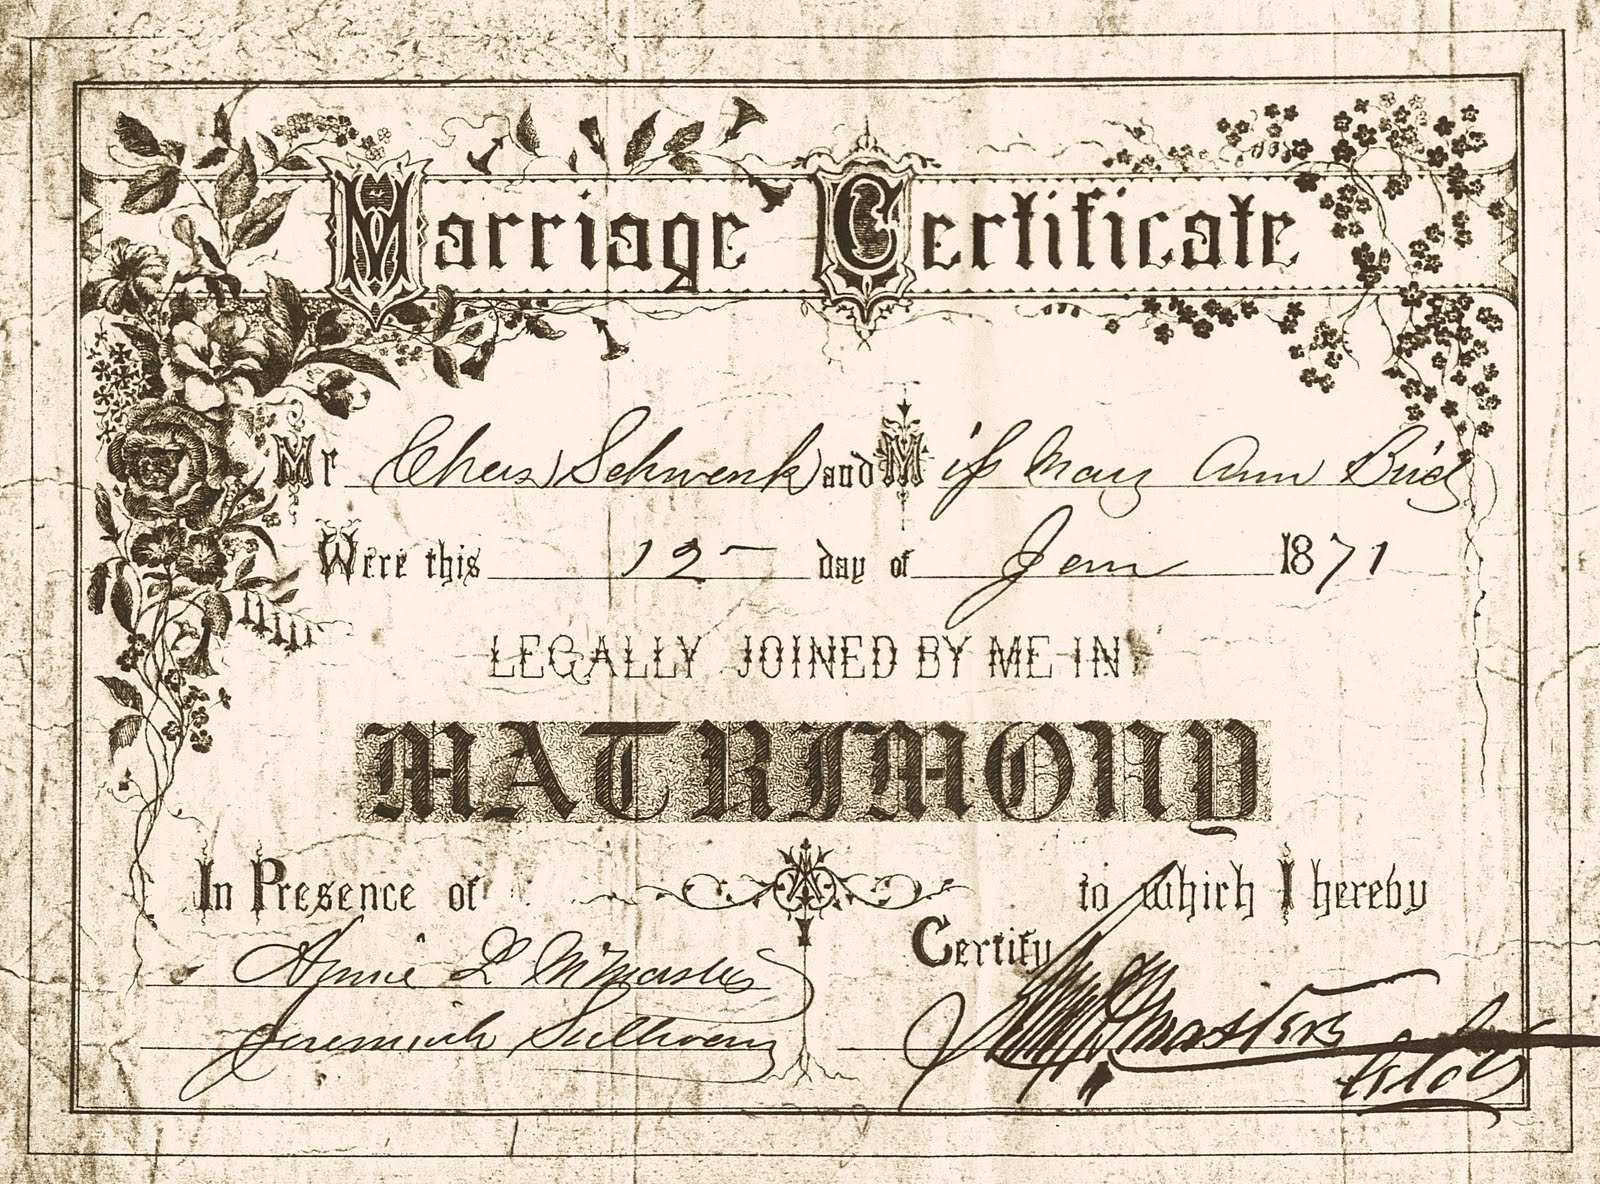 Marriage Certificate
Mr Chas Schwenk and Miss Mary Ann Bird
Were this 12 day of Jan 1871
LEGALLY JOINED BY ME IN
MATRIMONY
In Presence of to which I hereby
Certify
Annie L McMasters
Jeremiah Sullivan